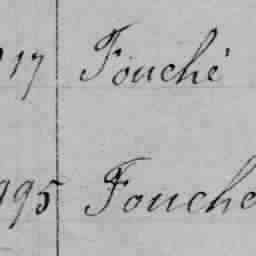 17 Fouché
995 Fouche